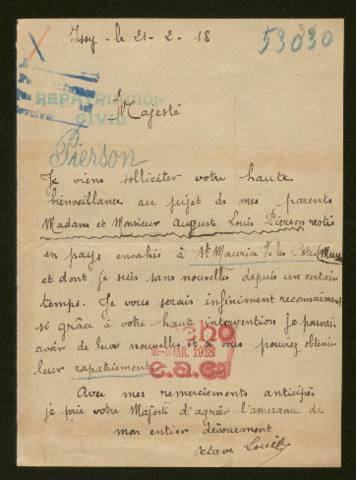 Issy - le 21 - 2 - 18
53030
REPATRIACIÓN
CIVIL
Majesté
Pierson
Je viens solliciter votre haute
bienveillance au sujet de mes parents
Madame et Monsieur Auguste Louis Pierson restés
en pays envahis à St Maurice s/s les Côtes (Meuse
et dont je suis sans nouvelle depuis un certain
temps. Je vous serais infiniment reconnaissant
si grâce à votre haute intervention je pouvais
avoir de leurs nouvelles et si vous pouviez obtenir
leur rapatriement.
MAR. 1918
Avec mes remerciements anticipés
je prie votre Majesté d'agréer l'assurance de
mon entier dévouement
Octave Louis